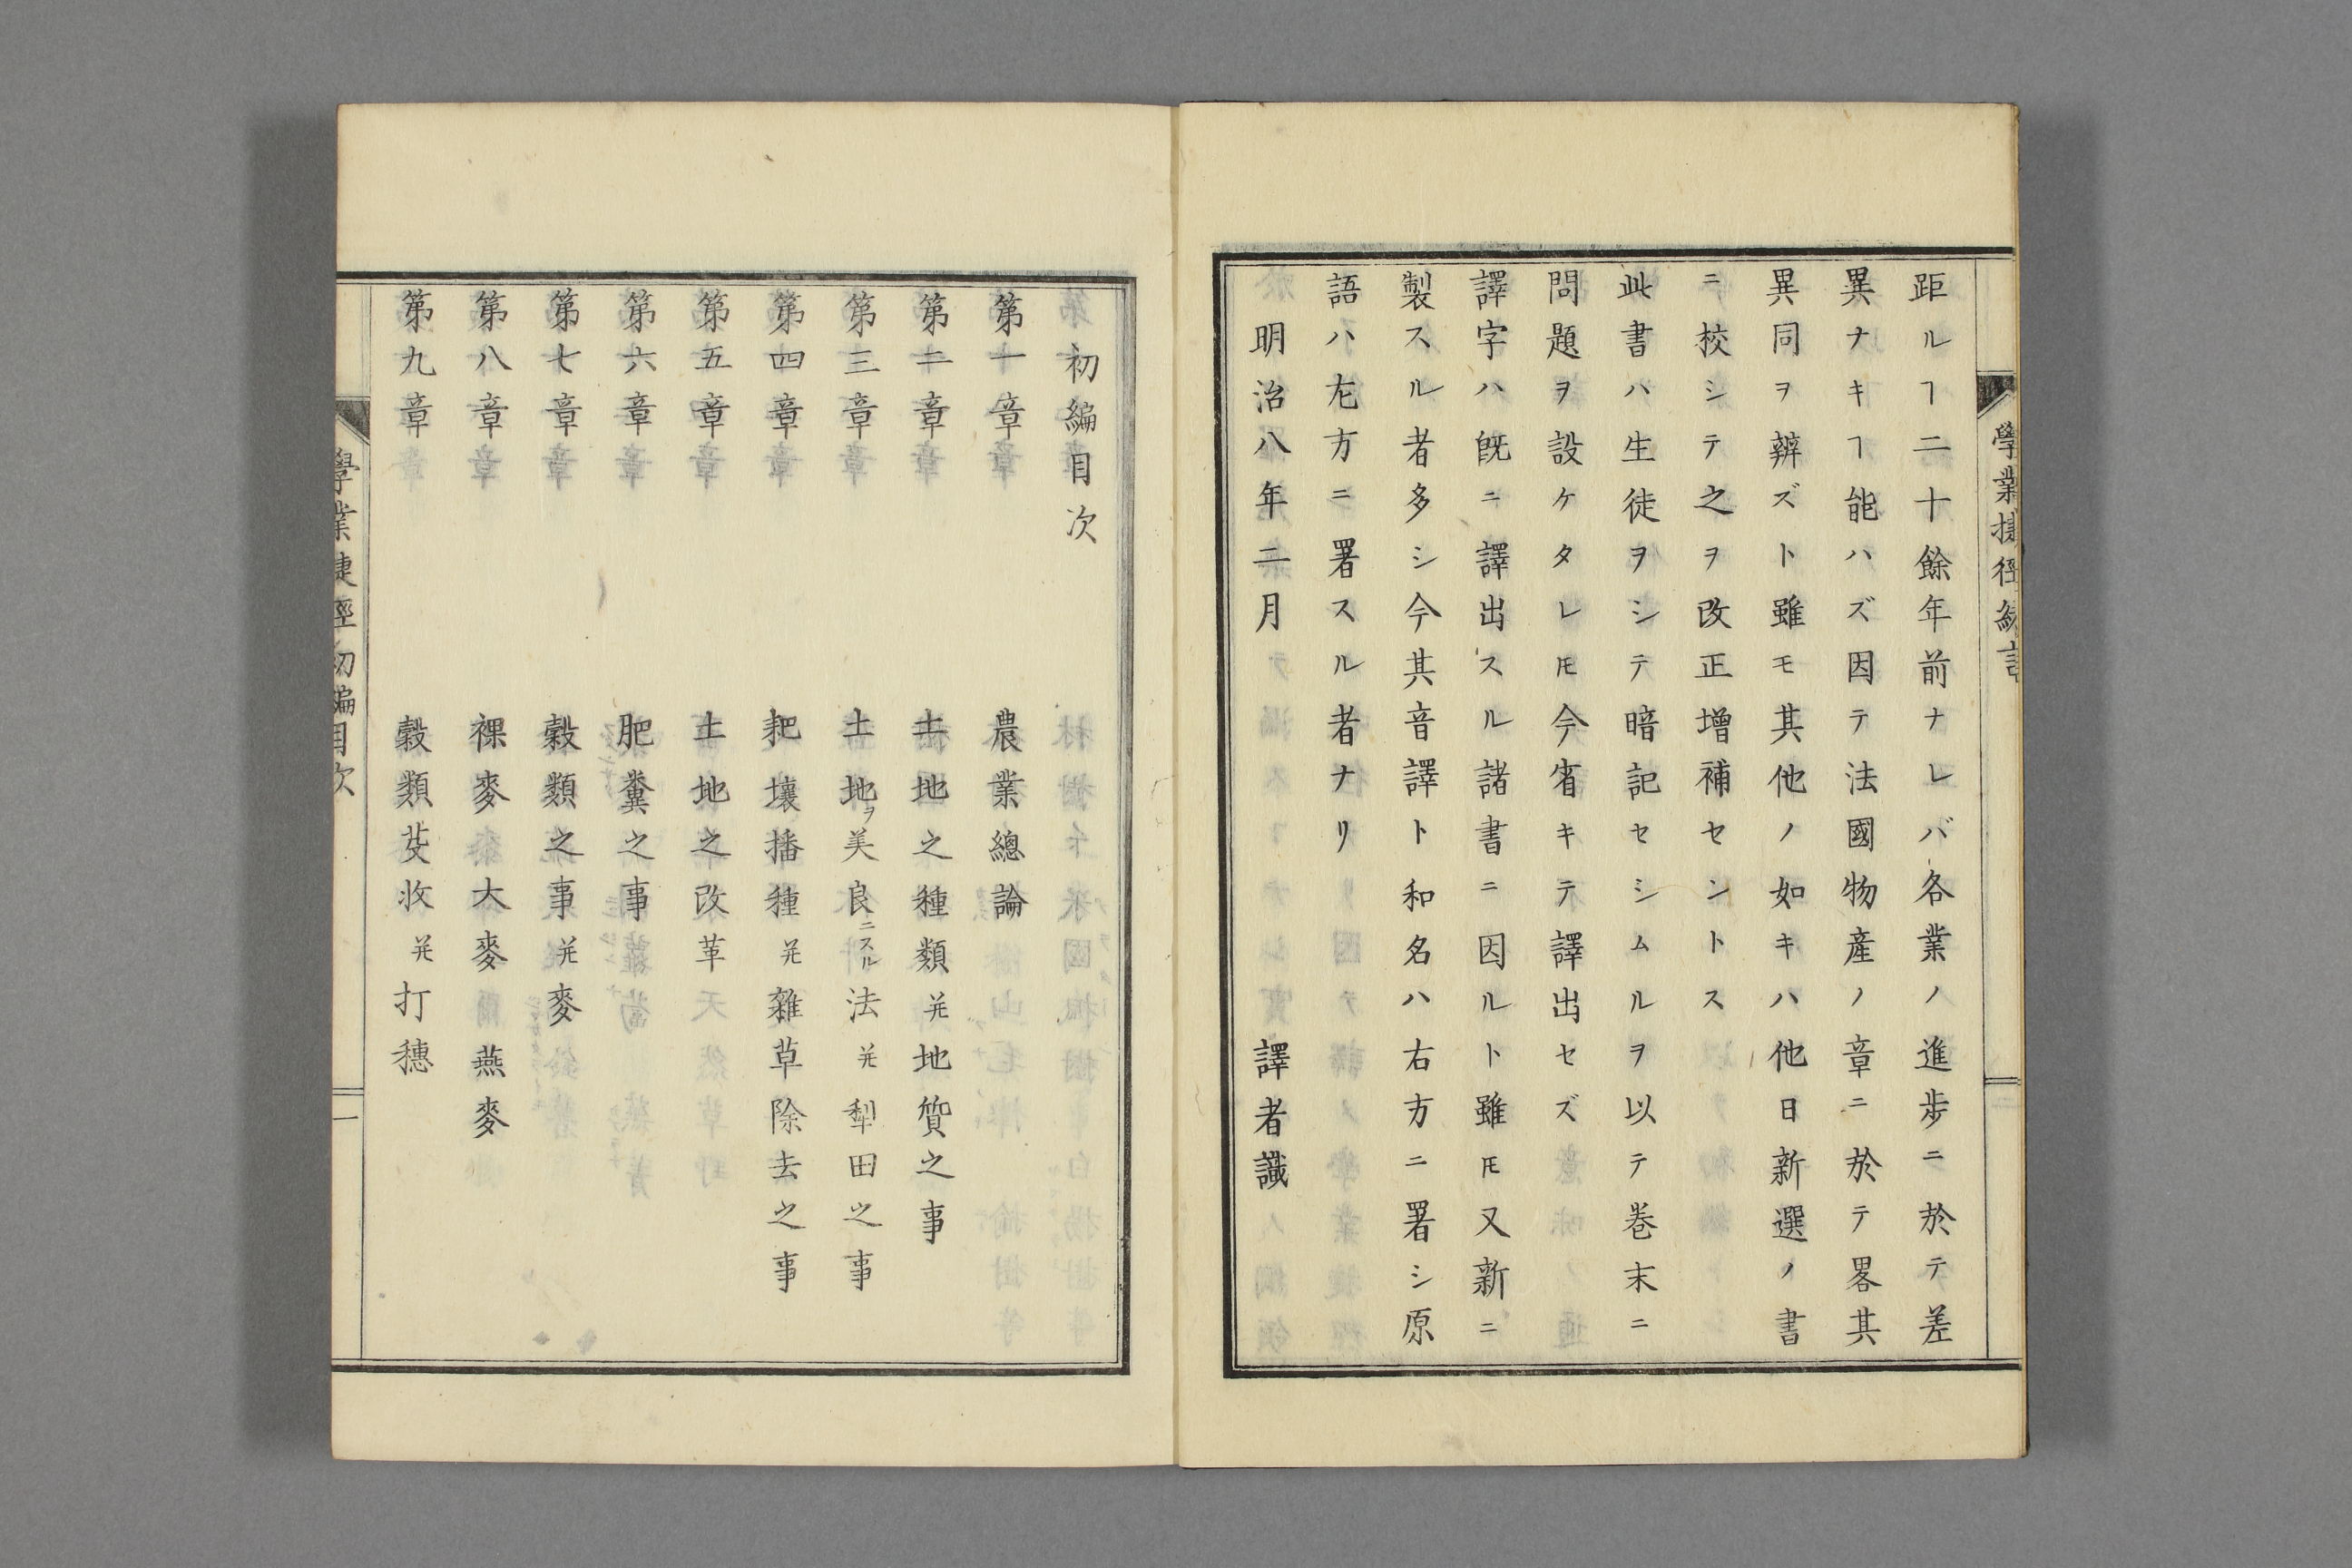 距ルヿ二十餘年前ナレバ各業ノ進歩ニ於テ差
異ナキヿ能ハズ因テ法國物産ノ章ニ於テ畧其
異同ヲ辨ズト雖モ其他ノ如キハ他日新選ノ書
ニ校シテ之ヲ改正增補セントス
此書ハ生徒ヲシテ暗記セシムルヲ以テ巻末ニ
問題ヲ設ケタレ𪜈今省キテ譯出セズ
譯字ハ既ニ譯出スル諸書ニ因ルト雖𪜈又新ニ
製スル者多シ今其音譯ト和名ハ右方ニ署シ原
語ハ左方ニ署スル者ナリ
明治八年二月 譯者識
初編目次
第一章 農業總論
第二章 土地之種類并地質之事
第三章 土地ヲ美良ニスル法并犁田之事
第四章 耙壤播種并雜草除去之事
第五章 土地之改革
第六章 肥糞之事
第七章 穀類之事并麥
第八章 裸麥大麥燕麥
第九章 穀類芟收并打穗
學業捷徑初編目次
一